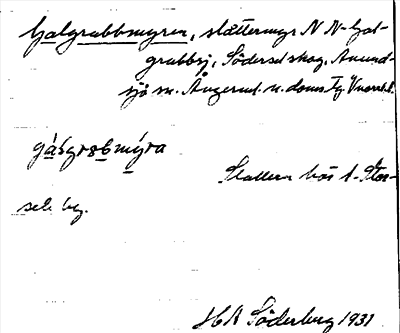 Galgrubbmyren, slåttermyr N N-Gal-
grubbsj, Söderselskog, Anund-
sjö sn. Ångerml. n. doms Tg.
gàsgrabmýra
slåttern hör t. Stor-
sele by.
H A Söderberg 1931